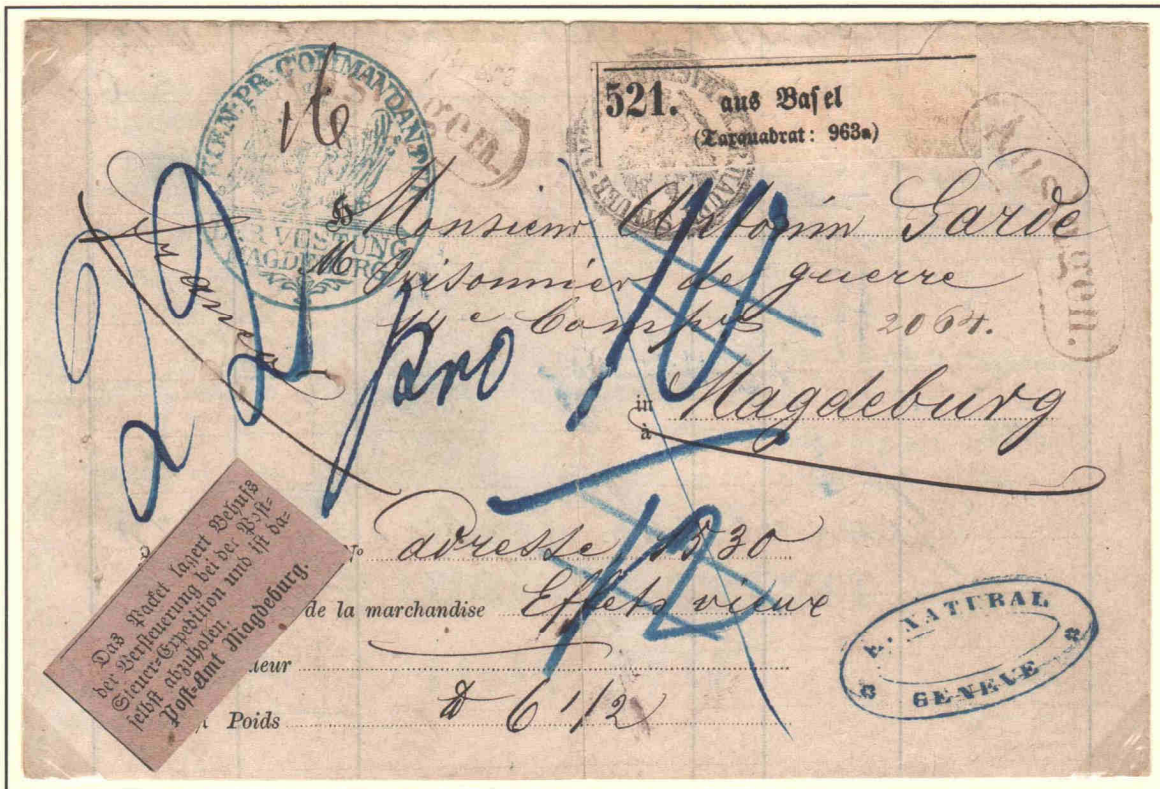 KOEN. PR. COMMANDANTUR
DER VESTUNG
MAGDEBURG
16
521. aus Basel
(Taxquadrat: 963a)
Ausgegen.
Monsieur Antonin Garde
M
Prisonnier de guerre
14e Compie 2064.
in
à Magdeburg
Franco
pro 10
No adresse 1530
de la marchandise Effets vieux
Poids 6 1/2
Das Packet lagert Behufs
der Versteuerung bei der Post-
Steuer-Expedition und ist da-
selbst abzuholen.
Post-Amt Magdeburg.
E. NATURAL
GENEVE